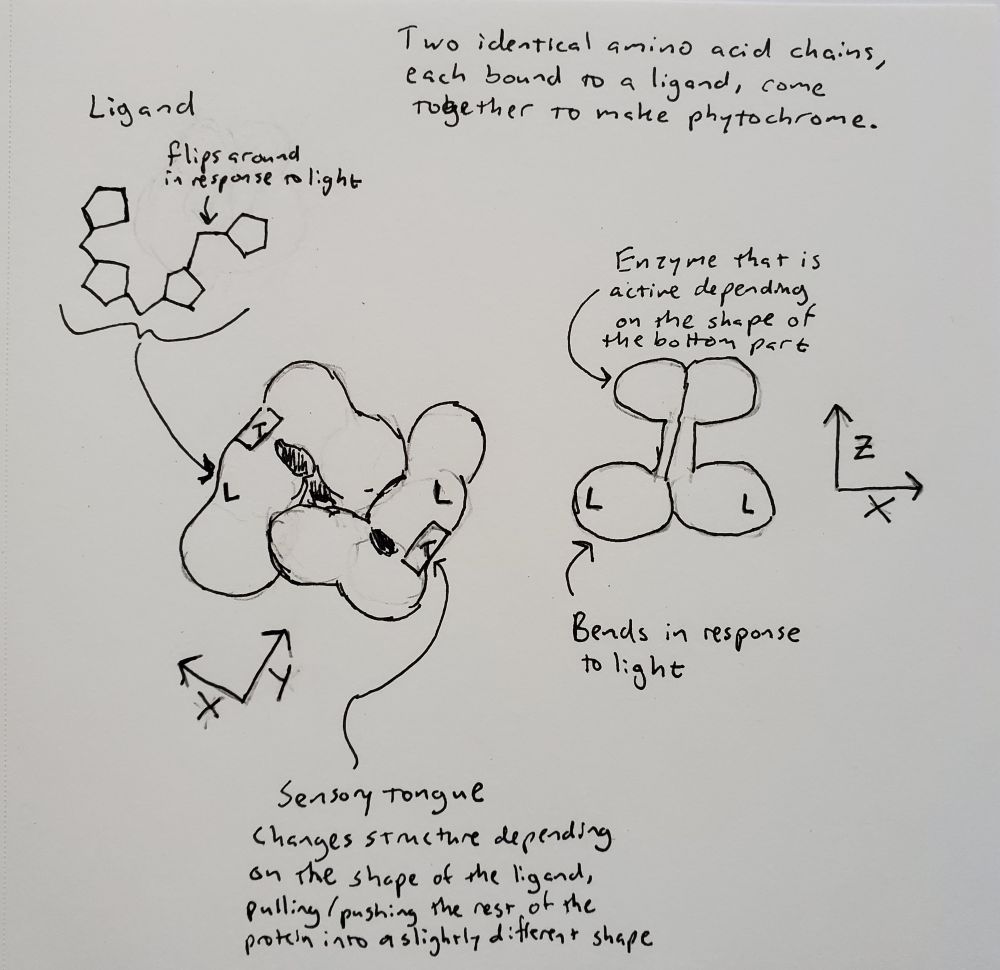 Two identical amino acid chains,
each bound to a ligand, come
together to make phytochrome.
Ligand
flips around
in response to light
Enzyme that is
active depending
on the shape of
the bottom part
T
L
L
T
L
L
Z
X
Bends in response
to light
X
Y
Sensory tongue
Changes structure depending
on the shape of the ligand,
pulling/pushing the rest of the
protein into a slightly different shape